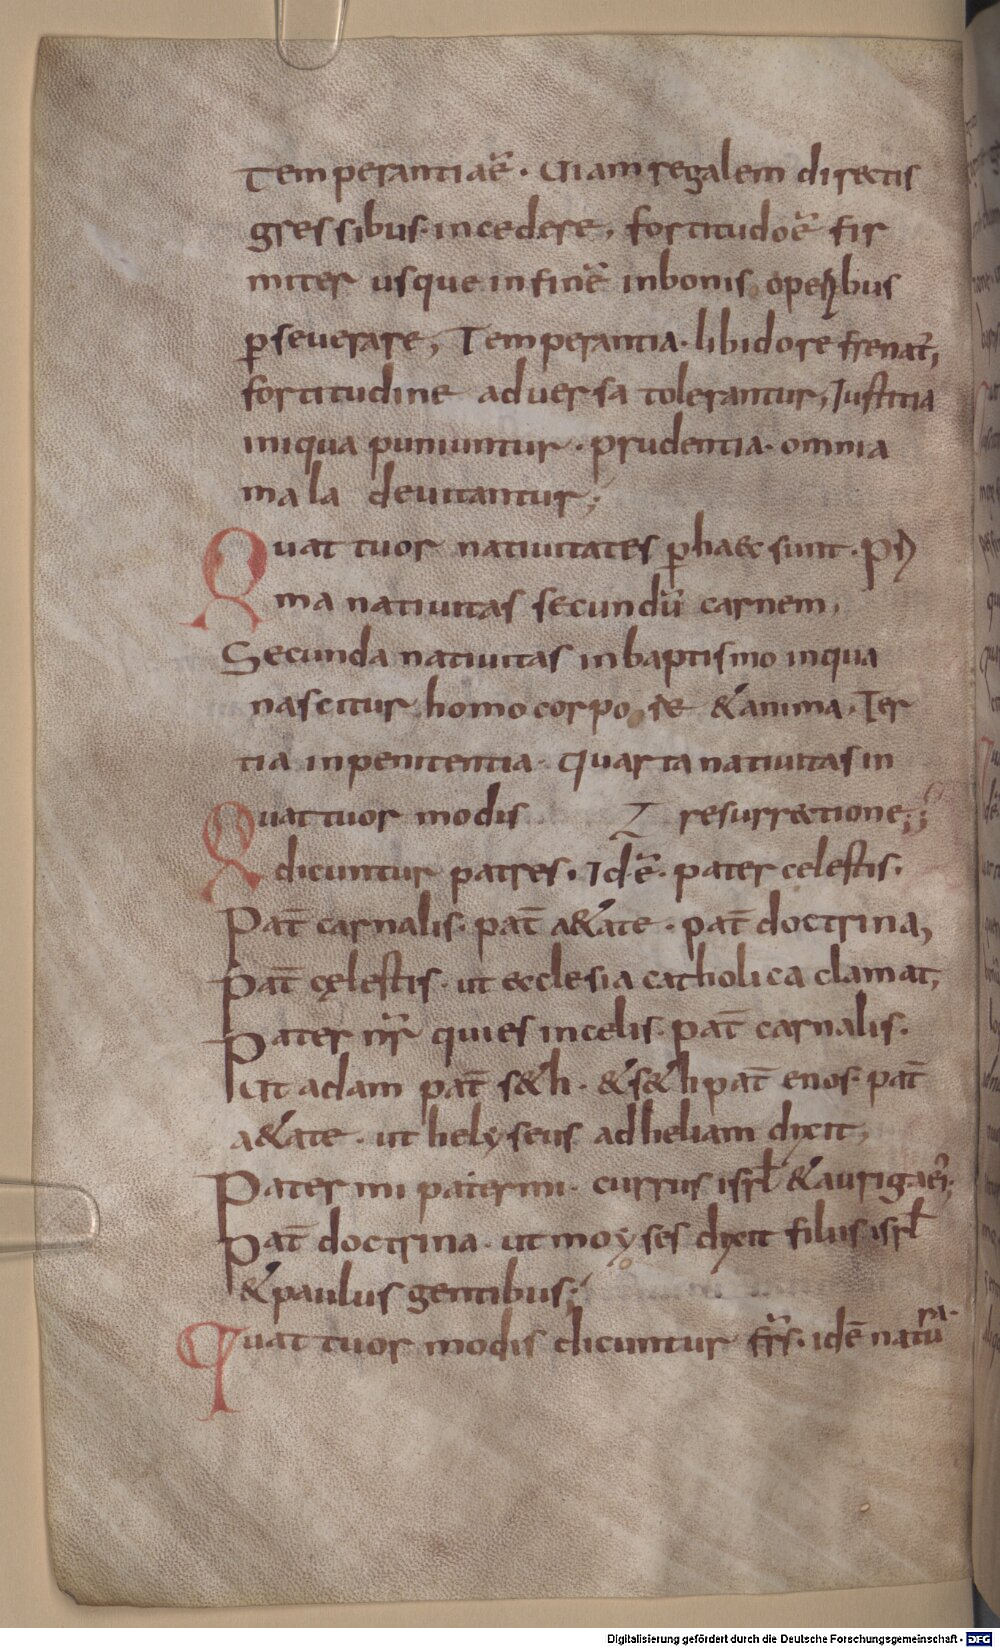 Temperantiae ē. Uiam regalem directis
gressibus incedere, fortitudo ē fir
miter usque in finē in bonis operibus
ꝑseuerare, Temperantia libidore frenat̄,
fortitudine aduersa tolerantur, Iustitia
iniqua puniuntur. prudentia. omnia
mala deuitantur;
Quattuor natiuitates ꝑhaec sunt. Pri
ma natiuitas secundū carnem,
Secunda natiuitas in baptismo in qua
nascitur homo corpore & anima, Ter
tia in penitentia. Quarta natiuitas in
Quattuor modis resurrectione;
dicuntur patres. Id ē. pater celestis.
Pat̄ carnalis. pat̄ a&ate. pat̄ doctrina,
Pat̄ cęlestis. ut ecclesia catholica clamat,
Pater nr̄ qui es in celis. pat̄ carnalis.
Ut adam pat̄ s&h. & s&h pat̄ enos. pat̄
a&ate. ut helyseus ad heliam dixit,
Pater mi pater mi. currus isrl̄ & auriga ei;
Pat̄ doctrina. ut moyses dixit filiis isrl̄
& paulus gentibus;
Quattuor modis dicuntur fr̄s. idē natu
ra.
Digitalisierung gefördert durch die Deutsche Forschungsgemeinschaft - DFG